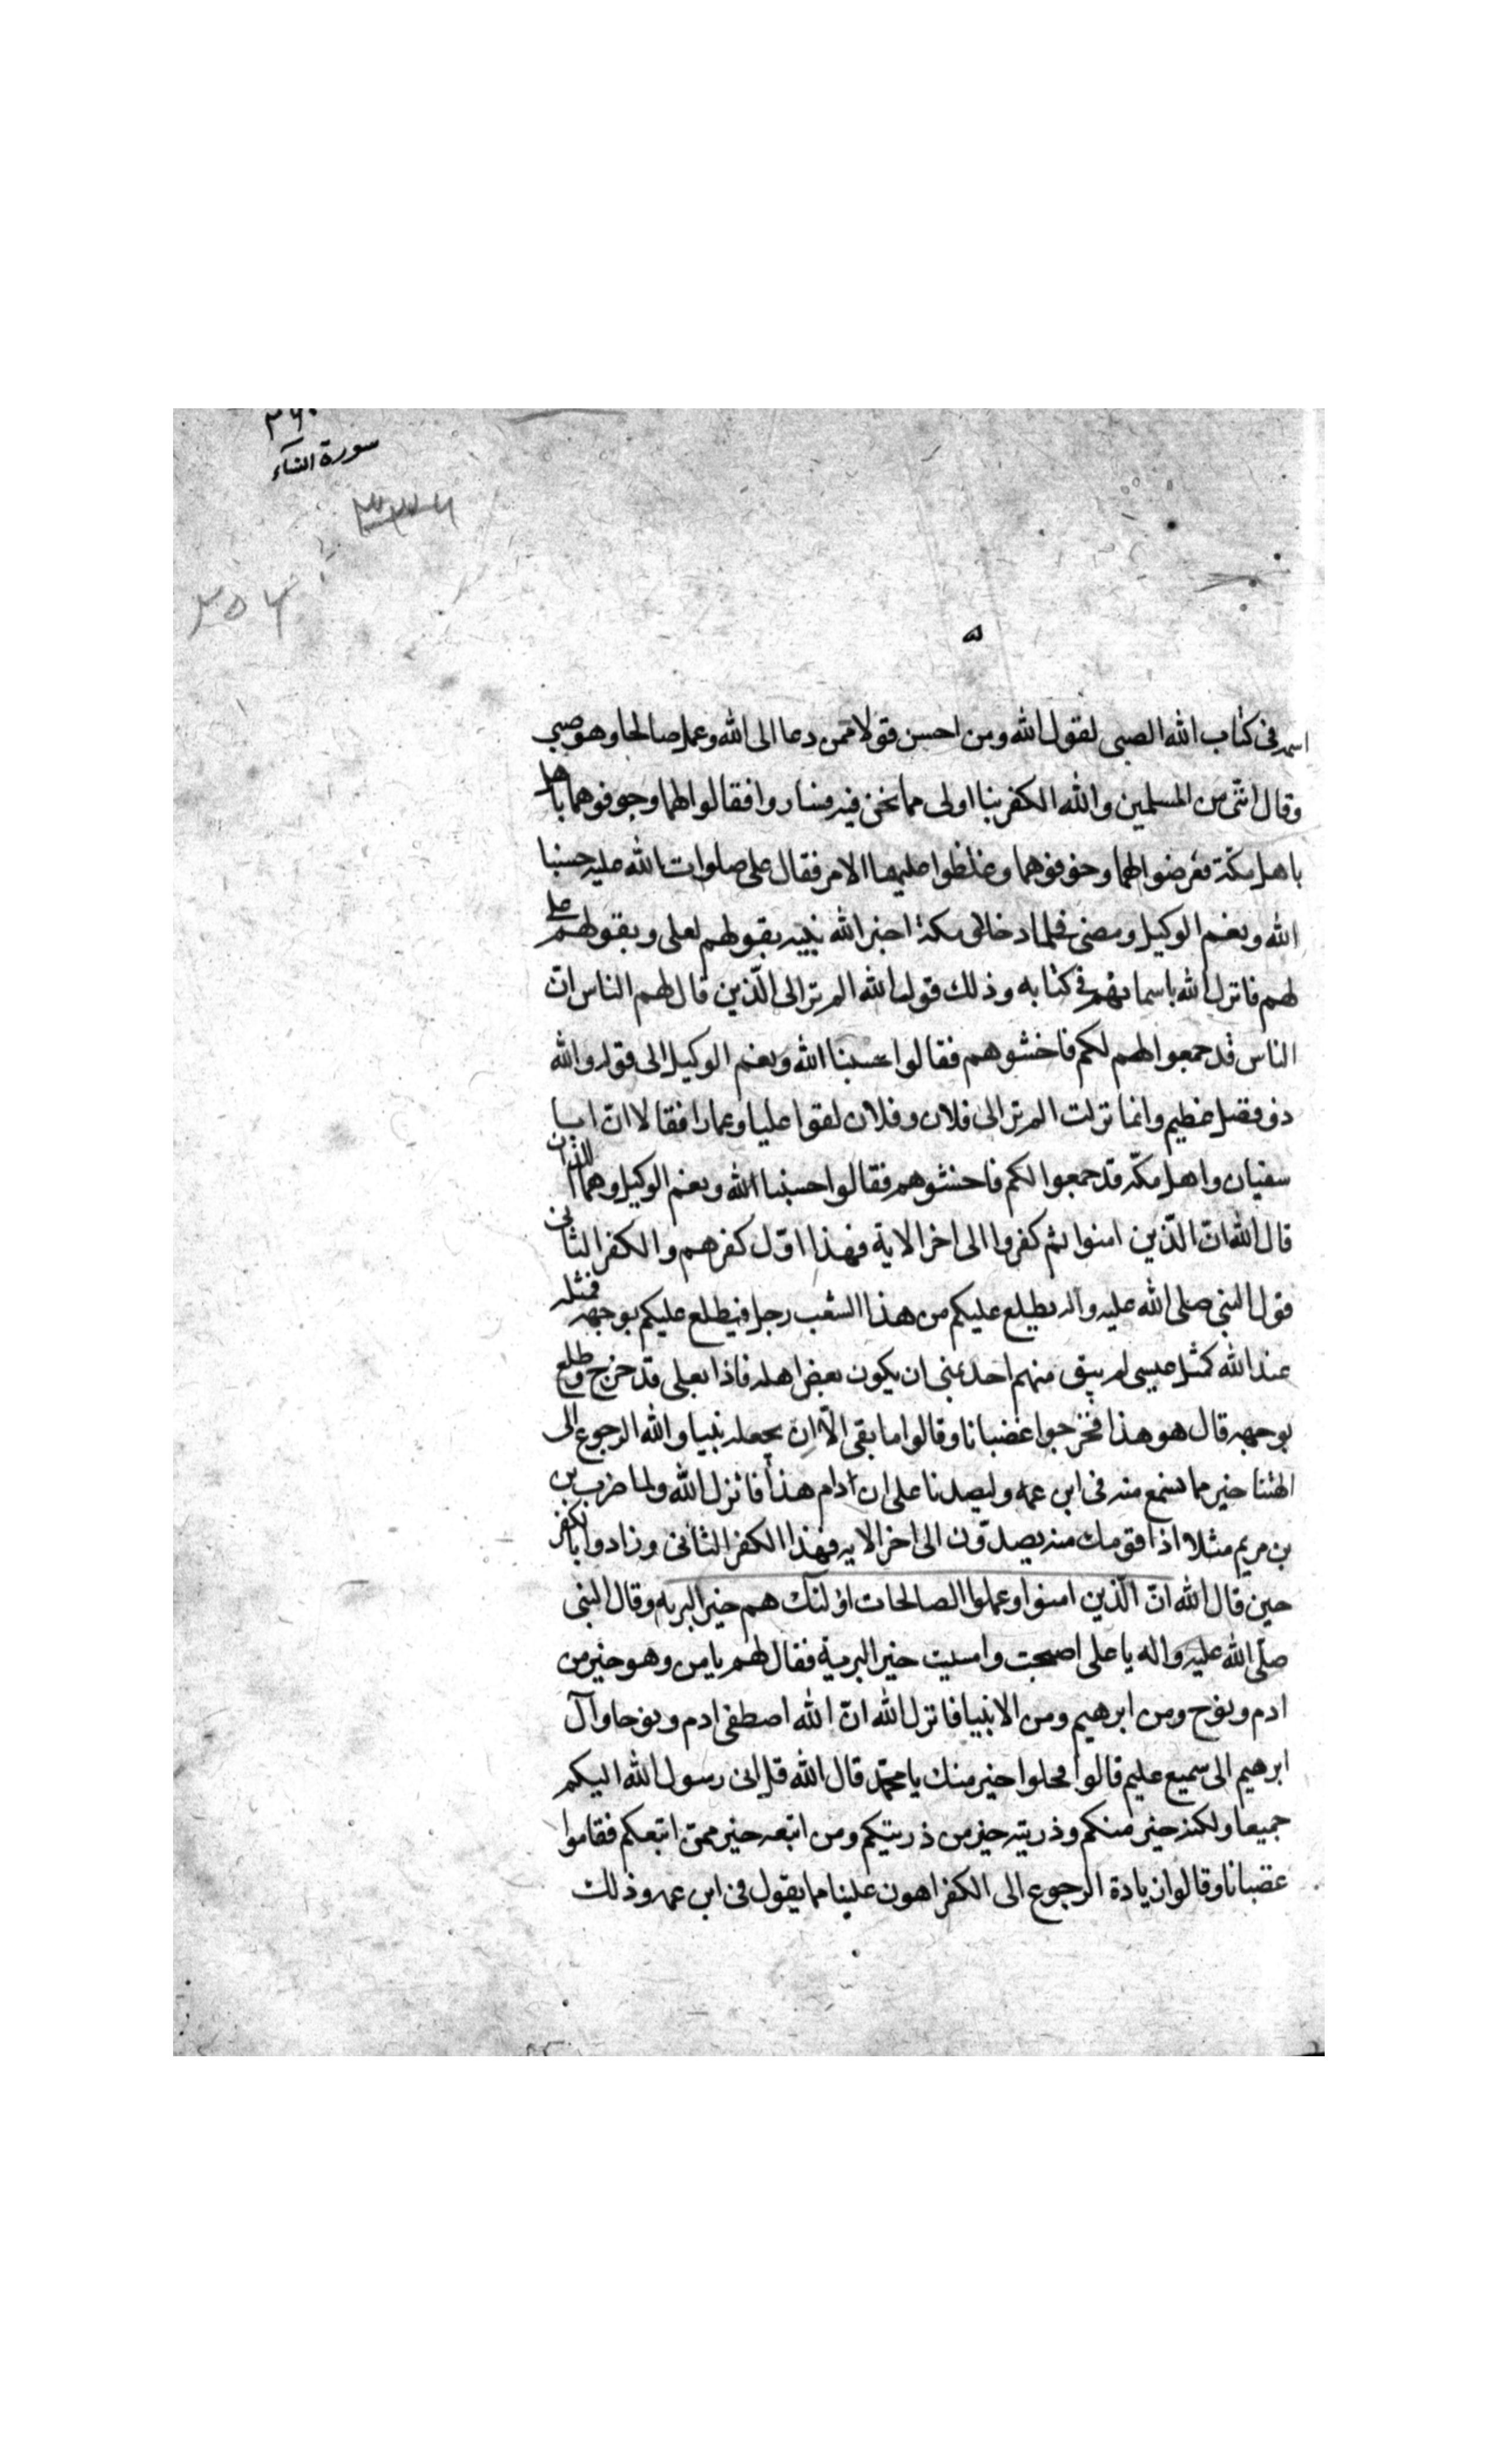 سورة النساء
٢٥٦
اسمه فى كتاب الله الصبى لقول الله ومن احسن قولا ممن دعا الى الله وعمل صالحا وهو صبى
وقال اننى من المسلمين والله الكفر بنا اولى مما نحن فيه فساروا فقالوا لهما وخوفوهما باهل
باهل مكة فعرضوا لهما وخوفوهما وغلظوا عليهما الامر فقال على صلوات الله عليه حسبنا
الله ونعم الوكيل ومضى فلما دخلا الى مكة اخبر الله نبيه بقولهم لعلى وبقول على
لهم فانزل الله باسمائهم فى كتابه وذلك قول الله الم تر الى الّذين قال لهم الناس انّ
الناس قد جمعوا لهم لكم فاخشوهم فقالوا حسبنا الله ونعم الوكيل الى قوله والله
ذو فضل عظيم وانما نزلت الم تر الى فلان وفلان لقوا عليا وعمارا فقالا انّ ابا
سفيان واهل مكّه قد جمعوا لكم فاخشوهم فقالوا حسبنا الله ونعم الوكيل وهما اللذان
قال الله انّ الّذين امنوا ثم كفروا الى اخر الاية فهذا اوّل كفرهم والكفر الثانى
قول النبى صلى الله عليه واله يطلع عليكم من هذا الشعب رجل فيطلع عليكم بوجهه فمثله
عند الله كمثل عيسى لم يبق منهم احد تمنى ان يكون بعض اهله فاذا بعلى قد خرج وطلع
بوجهه قال هو هذا فخرجوا غضبانا وقالوا ما بقى الّا ان يجعله نبيا والله الرجوع الى
الهتنا خير مما نسمع منه فى ابن عمه وليصدنا على ان دام هذا فانزل الله ولما ضرب بن
بن مريم مثلا اذا قومك منه يصدّون الى اخر الايه فهذا الكفر الثانى وزادوا بالكفر
حين قال الله انّ الّذين امنوا وعملوا الصالحات اولئك هم خير البريه وقال النبى
صلّى الله عليه واله يا على اصبحت وامسيت خير البرية فقال لهم يامن وهو خير من
ادم ونوح ومن ابرهيم ومن الانبيا فانزل الله انّ الله اصطفى ادم ونوحا وآل
ابرهيم الى سميع عليم قالوا فحلوا خير منك يا محمّد قال الله قل انى رسول الله اليكم
جميعا ولكنه خير منكم وذريته خير من ذريتكم ومن اتبعه خير ممن اتبعكم فقاموا
غضبانا وقالوا زيادة الرجوع الى الكفر اهون علينا مما يقول فى ابن عمه وذلك